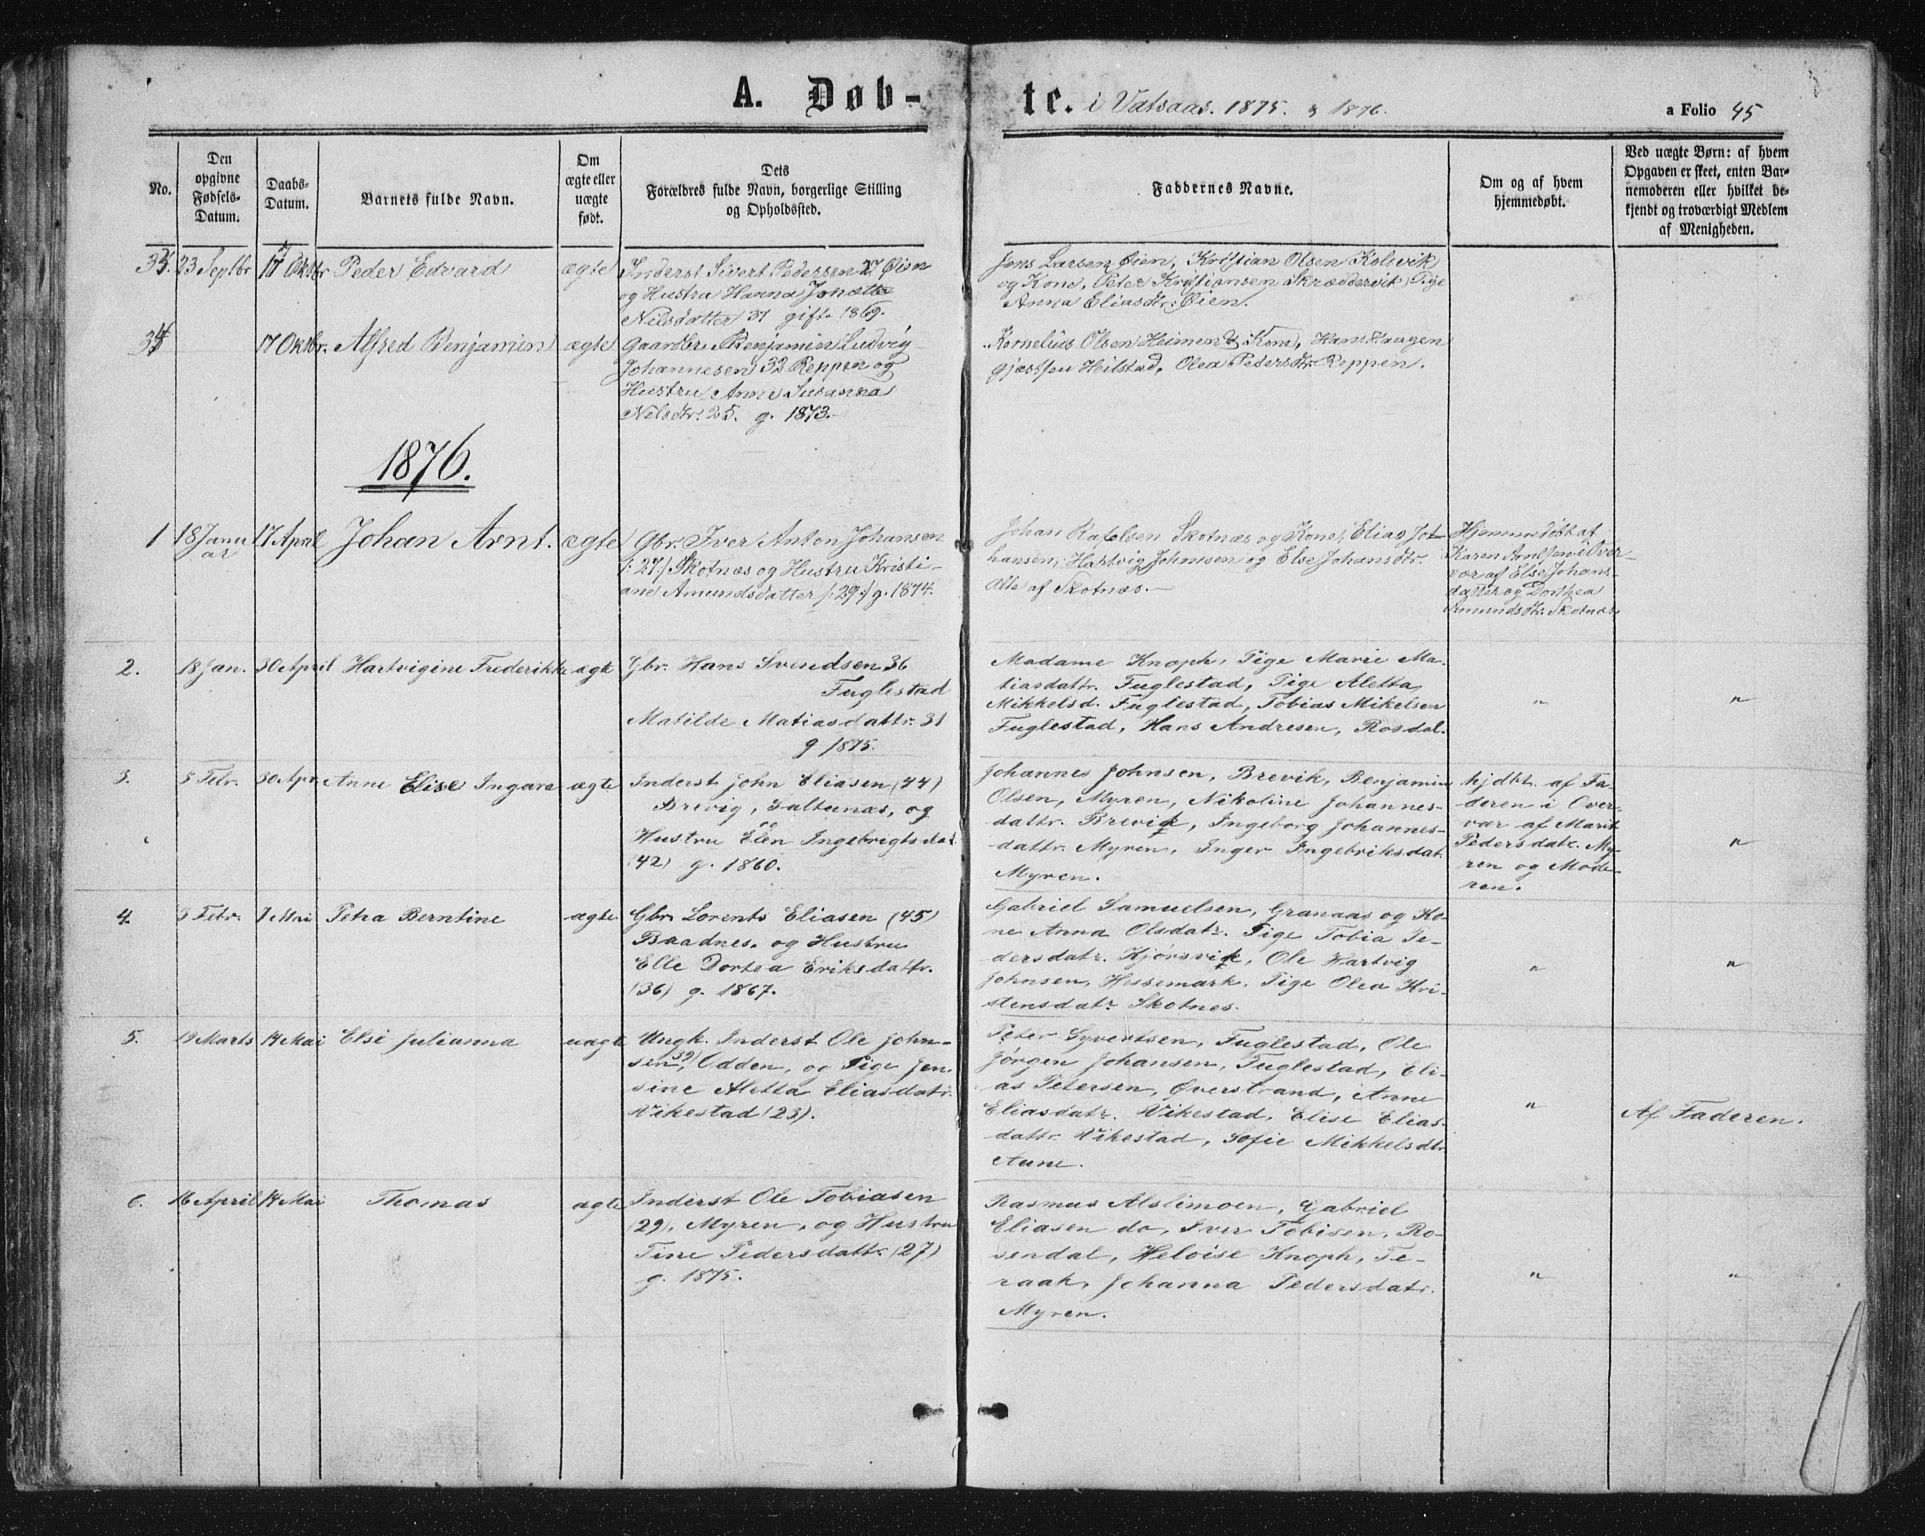 A. Døbte. i Vatsaas. 1875. & 1876.
a Folio 45
No.
Den opgivne Fødsels-Datum.
Daabs-Datum.
Barnets fulde Navn.
Om ægte eller uægte født.
Dets Forældres fulde Navn, borgerlige Stilling og Opholdssted.
Faddernes Navne.
Om og af hvem hjemmedøbt.
Ved uægte Børn: af hvem
Opgaven er skeet, enten Bar-
nemoderen eller hvilket be-
kjendt og troværdigt Medlem
af Menigheden.
33. 23 Septbr 17 Oktbr Peder Edvard ægte
Inderst Sivert Pedersen 27 Øien
og Hustru Hanna Jonette
Nilsdatter 31 gift 1869.
Jens Larsen Øien, Kristian Olsen Kolvik
og Kone, Peter Kristiansen Skræddervik, Pige
Anna Eliasdtr. Øien.
34 17 Oktbr. Alfred Benjamin ægte
Gaardbr. Benjamin Ludvig
Johannesen 32 Reppen og
Hustru Anne Susanna
Nilsdtr. 25. g. 1873.
Kornelius Olsen Heimen & Kone, Hans Haagen
Heilstad, Olea Pedersdtr. Reppen.
1876.
1 18 Janu 17 April Johan Arnt. ægte
ar
Gbr. Iver Anton Johansen
/: 27 :/ Skotnæs og Hustru Kristi-
ane Amundsdatter /: 29 :/ g. 1874.
Johan Skotnæs og Kone, Elias Jo-
hansen, Hartvig Johnsen og Else Johansdtr.
Alle af Skotnæs.
Hjemmedøbt af
Karen Arntsen i Over-
vær af Else Johans-
datter og Dorthea
Amundsdtr. Skotnæs
2. 18 Jan. 30 April Hartvigine Frederikke ægte
Gbr. Hans Svendsen 36
Fuglestad
Matilde Matiasdattr. 31
g 1875.
Madame Knoph, Pige Marie Ma-
tiasdattr. Fuglestad, Pige Aletta
Mikkelsd. Fuglestad, Tobias Mikelsen
Fuglestad, Hans Andresen, Rosdal.
"
"
3. 5 Febr. 30 Apr. Anne Elise Ingara ægte
Inderst John Eliasen (44)
Brevig, Saltunæs, og
Hustru Elen Ingebrigtsdat.
(42) g. 1860.
Johannes Johnsen, Brevik, Benjamin
Olsen, Myren, Nikoline Johannes-
dattr. Brevik, Ingeborg Johannes-
dattr. Myren, Inger Ingebriksdat.
Myren.
hjdbt. af Fa-
deren i Over-
vær af Marit
Pedersdatr. My-
ren og Mode-
ren.
"
4. 3 Febr. 7 Mai Petra Berntine ægte
Gbr. Lorents Eliasen (45)
Baadnes. og Hustru
Elle Dortea Eriksdattr.
(36) g. 1867.
Gabriel Samuelsen, Granaas og Ko-
ne Anna Olsdatr. Pige Tobia Pe-
dersdatr. Hjørsvik, Ole Hartvig
Johnsen, Hessemark. Pige Olea Kri-
stensdatr. Skotnes.
"
"
5. 19 Marts 14 Mai Else Julianna uægte
Ungk. Inderst Ole John-
sen (39), Odden, og Pige Jen-
sine Aletta Eliasdatr.
Vikestad (23).
Peter Syvertsen, Fuglestad, Ole
Jørgen Johansen, Fuglestad, Eli-
as Petersen, Øverstrand, Anne
Eliasdatr. Vikestad, Elise Elias-
dattr. Vikestad, Sofie Mikkelsdtr.
Aune.
"
Af Faderen.
6. 16 April 14 Mai Thomas ægte
Inderst Ole Tobiasen
(29), Myren, og Hustru
Tine Pedersdattr. (27)
g. 1875.
Rasmus Alslimoen, Gabriel
Eliasen do, Iver Tobisen, Ro-
sendal, Heloise Knoph, Te-
raak, Johanna Pedersdatr.
Myren.
"
"